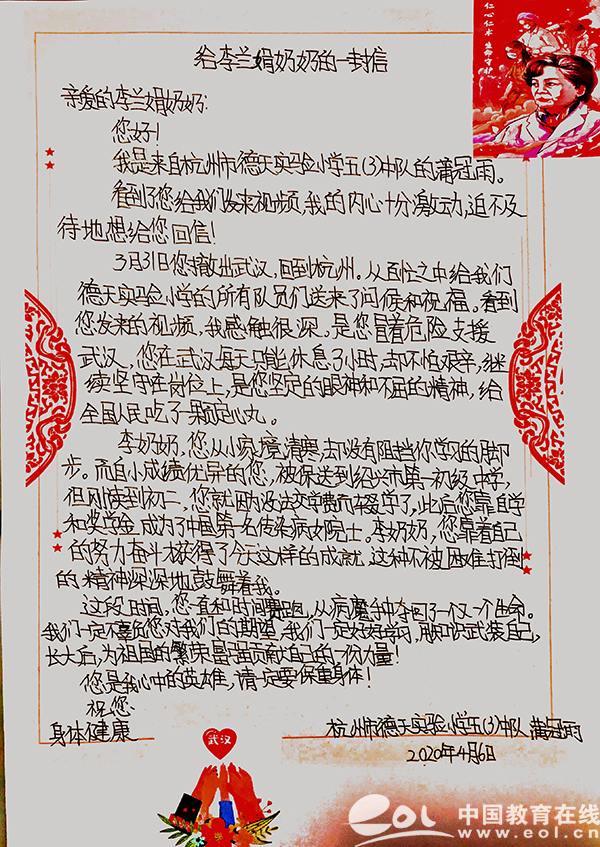 仁心仁术 生命守护
给李兰娟奶奶的一封信
亲爱的李兰娟奶奶:
您好!
我是来自杭州市德天实验小学五(3)中队的蒲冠雨。
看到了您给我们发来视频,我的内心十分激动,迫不及
待地想给您回信!
3月31日您撤出武汉,回到杭州。从百忙之中给我们
德天实验小学的所有队员们送来了问候和祝福。看到
您发来的视频,我感触很深。是您冒着危险支援
武汉,您在武汉每天只能休息了小时,却不怕艰辛,继
续坚守在岗位上,是您坚定的眼神和不屈的精神,给
全国人民吃了一颗定心丸。
李奶奶,您从小家境清寒,却没有阻挡你学习的脚
步。而自小成绩优异的您,被保送到绍兴市第一初级中学,
但刚读到初二,您就因为没法交学费而辍学了,此后您靠自学
和奖学金成为了中国第一名传染病女院士。李奶奶,您靠着自己
的努力奋斗获得了今天这样的成就,这种不被困难打倒
的精神深深地鼓舞着我。
这段时间,您一直和时间赛跑,从病魔手中夺回了一个又一个生命。
我们一定不辜负您对我们的期望,我们一定好好学习,用知识武装自己,
长大后,为祖国的繁荣富强贡献自己的一份力量!
您是我心中的英雄,请一定要保重身体!
祝您
身体健康
杭州市德天实验小学五(3)中队 蒲冠雨
2020年4月6日
武汉
eol 中国教育在线
www.eol.cn